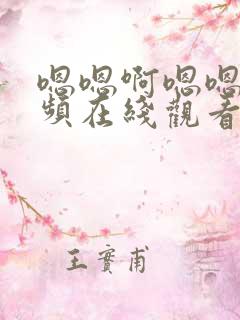 嗯嗯啊嗯嗯
頻在綫觀看
王實甫